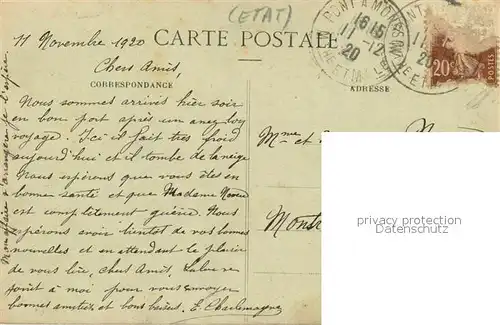 (ETAT)
11 Novembre 1920
CARTE POSTALE
Chers Amis,
CORRESPONDANCE
ADRESSE
Nous sommes arrivés hier soir
en bon port après un assez long
voyage. Ici il fait très froid
aujourd'hui et il tombe de la neige
Nous espérons que vous êtes en
bonne santé et que Madame Neveu
est complètement guérie. Nous
espérons avoir bientôt de vos bonnes
nouvelles et en attendant le plaisir
de vous lire, chers Amis,
joint à moi pour vous envoyer
bonnes amitiés et bons baisers. E. Charlemagne
Mon affaire s'arrangera je l'espère
PONT A MOUSSON
16 15
11-12
20
MEURTHE ET M
20c
POSTES
Mme et
Mont
privacy protection
Datenschutz